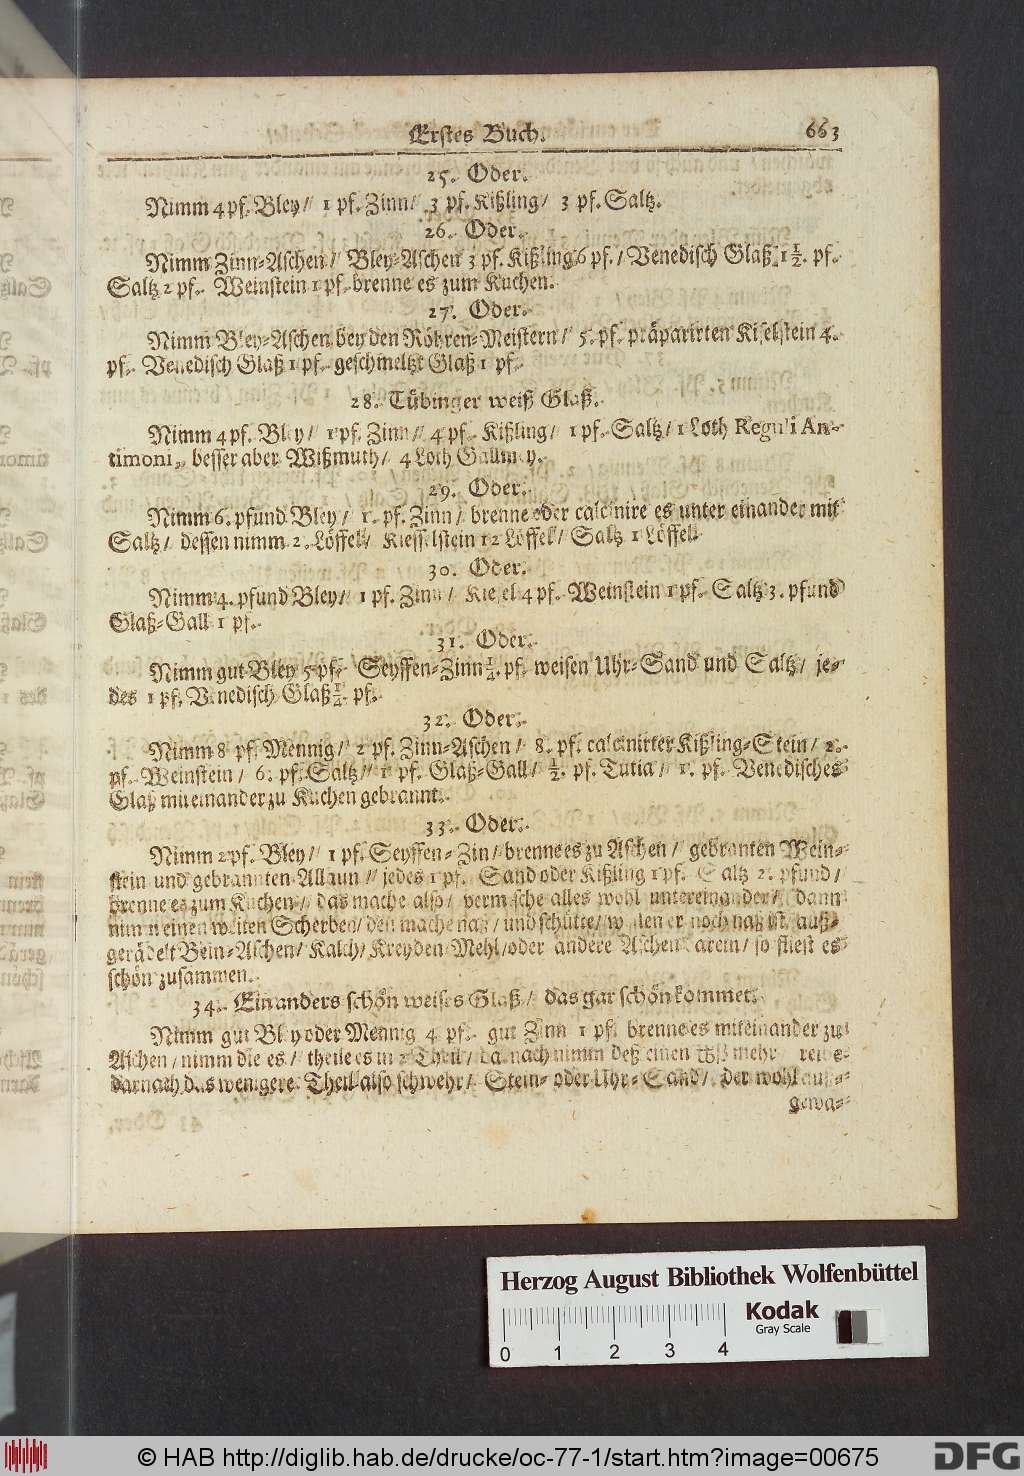 Erstes Buch. 663
25. Oder.
Nimm 4 pf. Bley/ 1 pf. Zinn/ 3 pf. Kißling/ 3 pf. Saltz.
26. Oder.
Nimm Zinn-Aschen/ Bley-Aschen 3 pf. Kißling 6 pf./ Venedisch Glaß 1 1/2. pf.
Saltz 2 pf. Weinstein 1 pf. brenne es zum Kuchen.
27. Oder.
Nimm Bley-Aschen bey den Röhren-Meistern/ 5. pf. präparirten Kiselstein 4.
pf. Venedisch Glaß 1 pf. geschmeltzt Glaß 1 pf.
28. Tübinger weiß Glaß.
Nimm 4 pf. Bley/ 1 pf. Zinn/ 4 pf. Kißling/ 1 pf. Saltz/ 1 Loth Reguli An-
timoni, besser aber Wißmuth/ 4 Loth Gallmey.
29. Oder.
Nimm 6. pfund Bley/ 1. pf. Zinn/ brenne oder calcinire es unter einander mit
Saltz/ dessen nimm 2. Löffel/ Kiesselstein 12 Löffel/ Saltz 1 Löffel.
30. Oder.
Nimm 4. pfund Bley/ 1 pf. Zinn/ Kiesel 4 pf. Weinstein 1 pf. Saltz 3. pfund
Glaß-Gall 1 pf.
31. Oder.
Nimm gut Bley 5 pf. Seyffen-Zinn 1/4. pf. weisen Uhr-Sand und Saltz/ je-
des 1 pf. Venedisch Glaß 1/4. pf.
32. Oder.
Nimm 8 pf. Mennig/ 2 pf. Zinn-Aschen/ 8. pf. calcinirter Kißling-Stein/ 2.
pf. Weinstein/ 6. pf. Saltz/ 1 pf. Glaß-Gall/ 1/2. pf. Tutia/ 1. pf. Venedisches
Glaß miteinander zu Kuchen gebrannt.
33. Oder.
Nimm 2 pf. Bley/ 1 pf. Seyffen-Zin/ brenne es zu Aschen/ gebranten Wein-
stein und gebrannten Allaun/ jedes 1 pf. Sand oder Kißling 1 pf. Saltz 2. pfund/
brenne es zum Kuchen/ das mache also/ vermische alles wohl untereinander/ dann
nimm einen weiten Scherben/ den mache naß/ und schütte/ weilen er noch naß ist, auß-
gerädelt Bein-Aschen/ Kalch/ Kreyden Mehl/ oder andere Aschen darein/ so fliest es
schön zusammen.
34. Ein anders schön weises Glaß/ das gar schön kommet.
Nimm gut Bley oder Mennig 4 pf. gut Zinn 1 pf. brenne es miteinander zu
Aschen/ nimm die es/ theile es in 2 Theil/ darnach nimm deß einen mehr
darnach das wenigere Theil also schwehr/ Stein- oder Uhr-Sand/ der wohl auß-
gewa-
Herzog August Bibliothek Wolfenbüttel
Kodak
Gray Scale
0 1 2 3 4
© HAB http://diglib.hab.de/drucke/oc-77-1/start.htm?image=00675
DFG